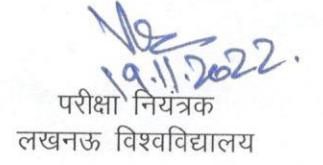 19.11.2022.
परीक्षा नियंत्रक
लखनऊ विश्वविद्यालय